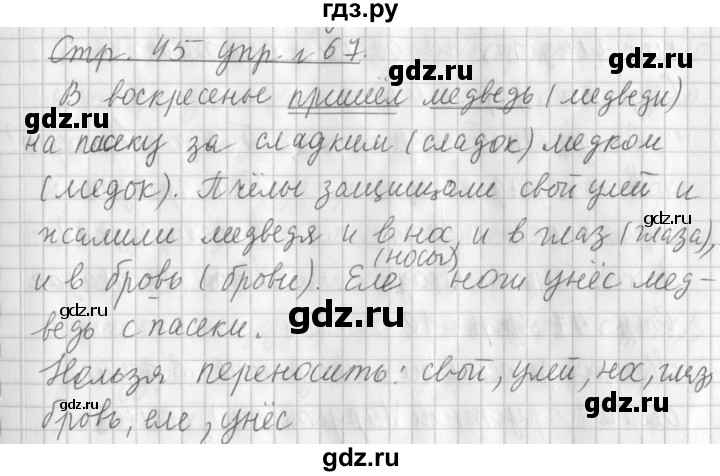 гдз.ру
Стр. 45 упр. № 67.
В воскресенье пришёл медведь (медведи)
на пасеку за сладким (сладок) медком
(медок). Пчёлы защищали свой улей и
жалили медведя и в нос, и в глаз (глаза),
(носы)
и в бровь (брови). Еле ноги унёс мед-
ведь с пасеки.
Нельзя переносить: свой, улей, нос, глаз,
бровь, еле, унёс
gdz.ru
gdz.ru
gdz.ru
gdz.ru
gdz.ru
gdz.ru
gdz.ru
gdz.ru
gdz.ru
gdz.ru
gdz.ru